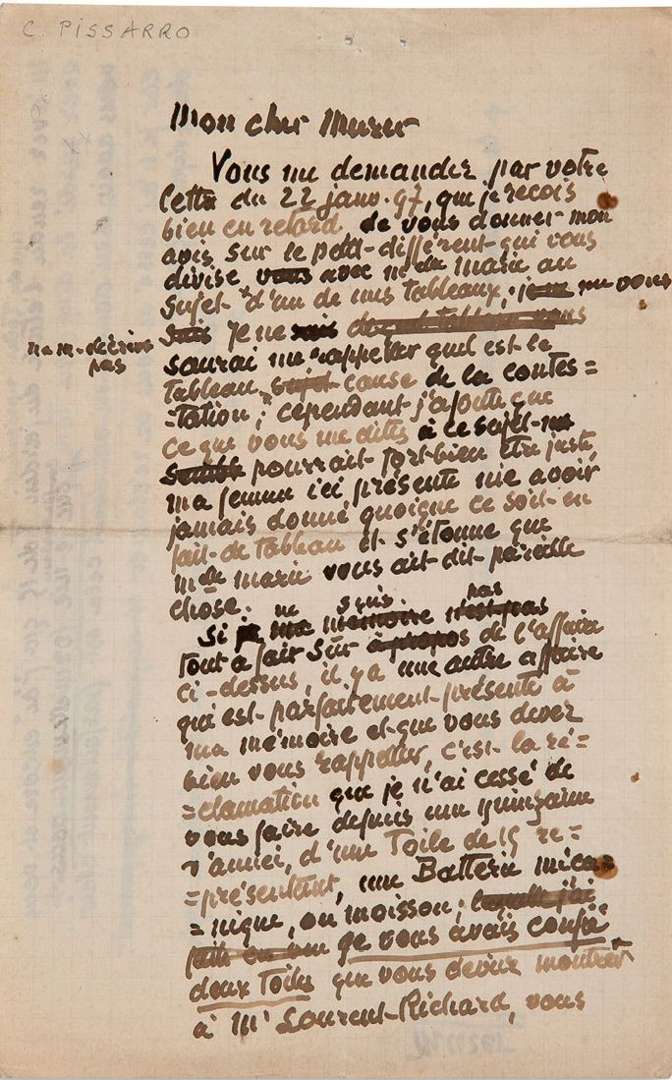 C. PISSARRO
Mon cher Murer
Vous me demandez par votre
lettre du 22 janv. 97, que je reçois
bien en retard de vous donner mon
avis sur le petit différent qui vous
divise vous avec Mde Marie au
sujet d'un de mes tableaux, je ne vous
suis je ne sais
ne m-décrire
pas
saurai me rappeler quel est le
tableau sujet cause de la contes=
=tation; cependant j'ajoute que
ce que vous me dites à ce sujet me
semble pourrait fort bien être juste,
ma femme ici présente nie avoir
jamais donné quoique ce soit en
fait de tableau et s'étonne que
Mde Marie vous ait dit pareille
chose.
ne suis pas
Si je ma mémoire n'est pas
tout à fait sûr à propos de l'affaire
ci-dessus, il y a une autre affaire
qui est parfaitement présente à
ma mémoire et que vous devez
bien vous rappeller, c'est la ré=
=clamation que je n'ai cessé de
vous faire depuis une quinzaine
d'années, d'une Toile de 15 re=
=présentant, une Batterie méca=
=nique, ou moisson; laquelle j'ai
je vous avais confié
deux Toiles que vous deviez montrer
à Mr Laurent-Richard, vous